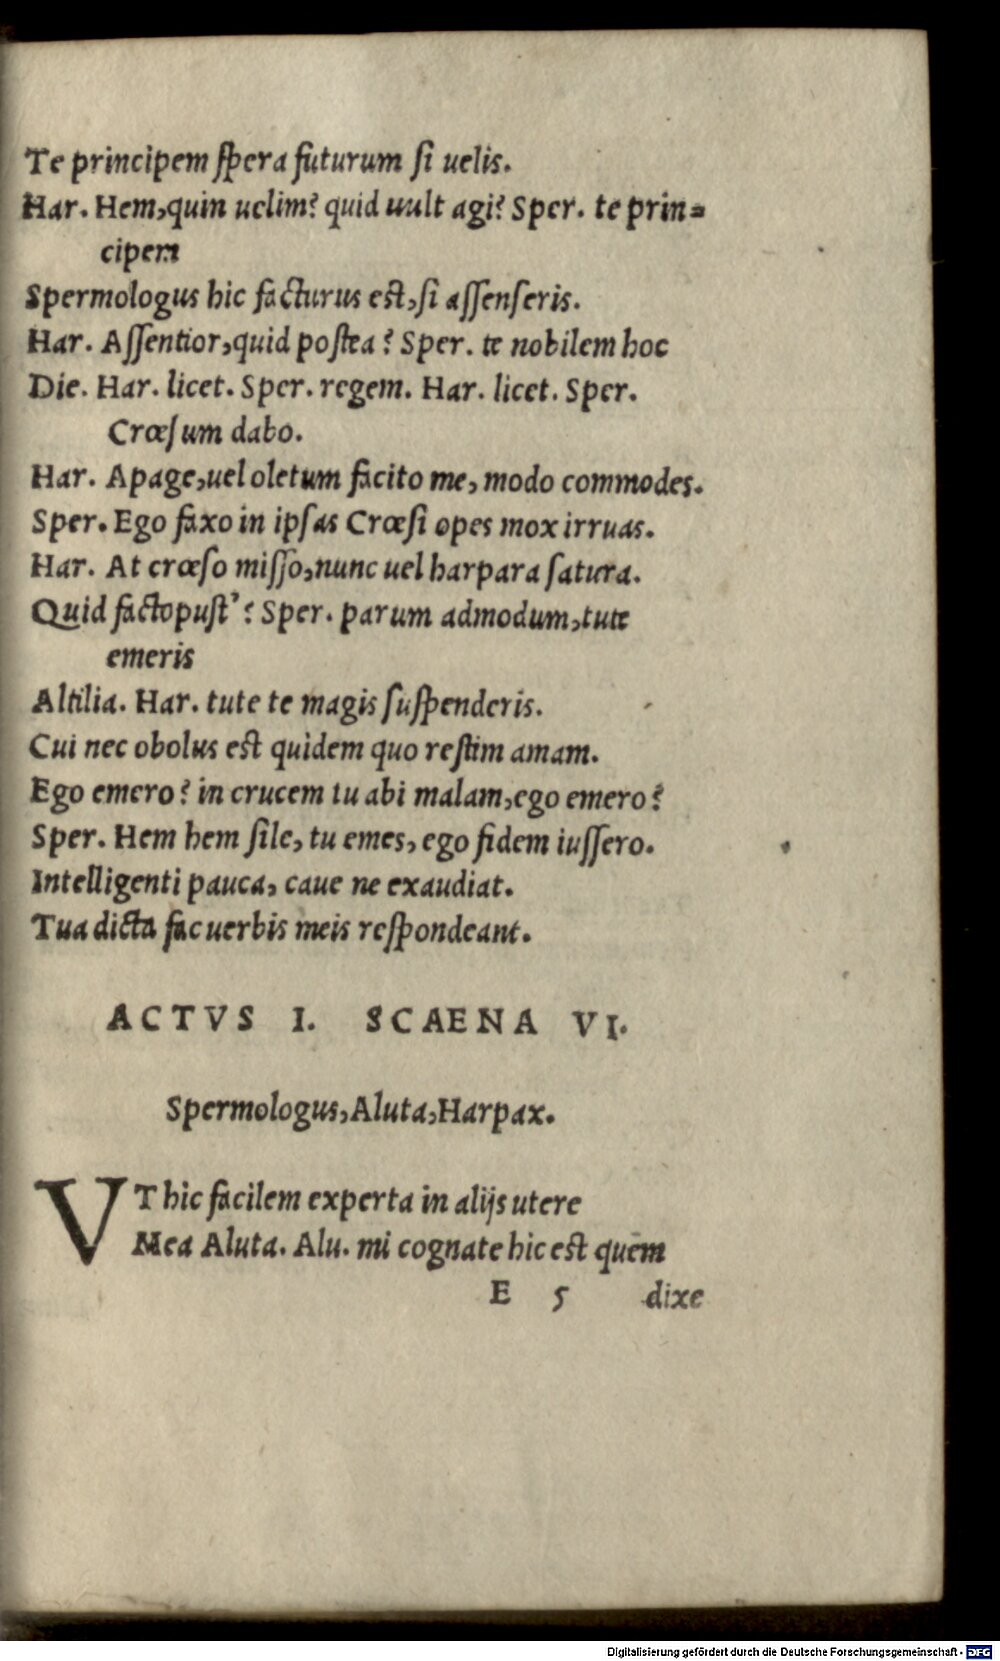 Te principem ſpera futurum ſi uelis.
Har. Hem,quin uelim? quid uult agi? Sper. te prin=
cipem
Spermologus hic facturus est,ſi aſſenſeris.
Har. Aſſentior,quid poſtea? Sper. te nobilem hoc
Die. Har. licet. Sper. regem. Har. licet. Sper.
Crœſum dabo.
Har. Apage,uel oletum facito me, modo commodes.
Sper. Ego faxo in ipſas Crœſi opes mox irruas.
Har. At crœſo miſſo,nunc uel harpara ſatura.
Quid factopuſt’? Sper. parum admodum,tute
emeris
Altilia. Har. tute te magis ſuſpenderis.
Cui nec obolus est quidem quo reſtim amam.
Ego emero? in crucem tu abi malam,ego emero?
Sper. Hem hem ſile, tu emes, ego fidem iuſſero.
Intelligenti pauca, caue ne exaudiat.
Tua dicta fac uerbis meis reſpondeant.
ACTVS I. SCAENA VI.
Spermologus,Aluta,Harpax.
VT hic facilem experta in alijs utere
Mea Aluta. Alu. mi cognate hic est quem
E 5 dixe
Digitalisierung gefördert durch die Deutsche Forschungsgemeinschaft - DFG